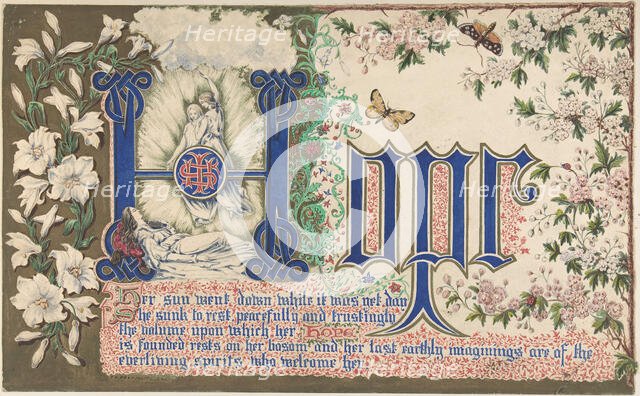 Hope
Her sun went down while it was yet day
She sunk to rest peacefully and trustingly
the volume upon which her Hope
is founded rests on her bosom and her last earthly imaginings are of the
everliving spirits who welcome her
IHS
Heritage Heritage Heritage
Heritage Heritage Heritage
Heritage Heritage Heritage
Heritage Heritage Heritage